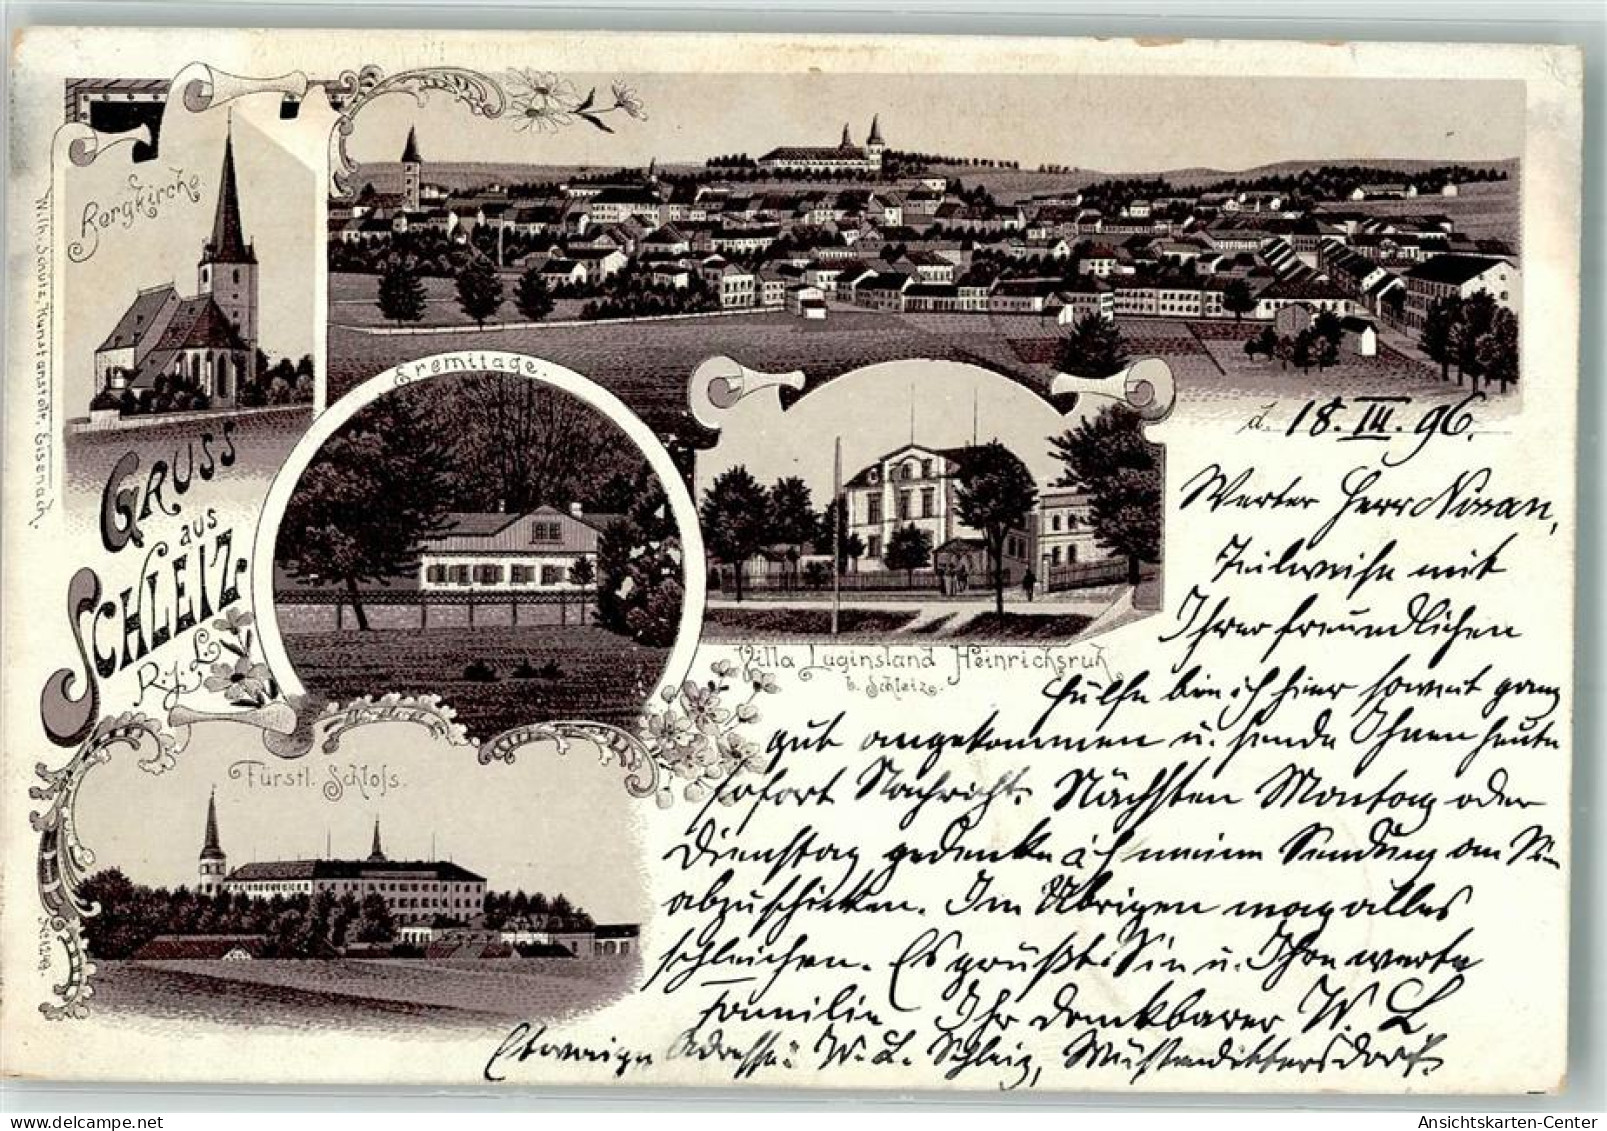 Bergkirche
Wilh. Schulz, Kunstanstalt, Eisenach.
GRUSS
aus
SCHLEIZ
R. j. L.
Eremitage.
Villa Luginsland Heinrichsruh
b. Schleiz.
Fürstl. Schloſs.
d. 18. III. 96.
Werter Herr
Teilweise mit
Ihrer freundlichen
Hülfe bin ich hier soweit ganz
gut angekommen u. sende Ihnen heute
sofort Nachricht. Nächsten Montag oder
Dienstag gedenke ich meine Sendung an Sie
abzuschicken. Im Übrigen mag alles
schleichen. Es grüßt Sie u. Ihre werte
Familie Ihr dankbarer W. L.
Etwaige Adresse: W. L. Schleiz,
Ansichtskarten-Center